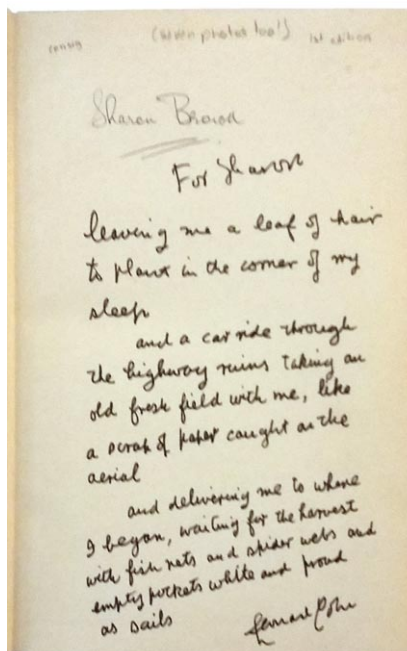 (when photos too!) 1st edition
Sharon Brown
For Sharon
leaving me a leaf of hair
to plant in the corner of my
sleep
and a car ride through
the highway ruins taking an
old fresh field with me, like
a scrap of paper caught on the
aerial
and delivering me to where
I began, waiting for the harvest
with fish nets and spider webs and
empty pockets white and proud
as sails
Leonard Cohen